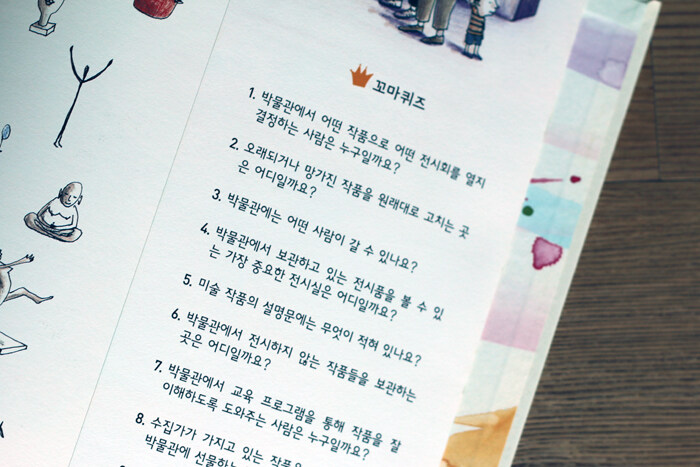 꼬마퀴즈
1. 박물관에서 어떤 작품으로 어떤 전시회를 열지
결정하는 사람은 누구일까요?
2. 오래되거나 망가진 작품을 원래대로 고치는 곳
은 어디일까요?
3. 박물관에는 어떤 사람이 갈 수 있나요?
4. 박물관에서 보관하고 있는 전시품을 볼 수 있
는 가장 중요한 전시실은 어디일까요?
5. 미술 작품의 설명문에는 무엇이 적혀 있나요?
6. 박물관에서 전시하지 않는 작품들을 보관하는
곳은 어디일까요?
7. 박물관에서 교육 프로그램을 통해 작품을 잘
이해하도록 도와주는 사람은 누구일까요?
8. 수집가가 가지고 있는 작품을
박물관에 선물하는